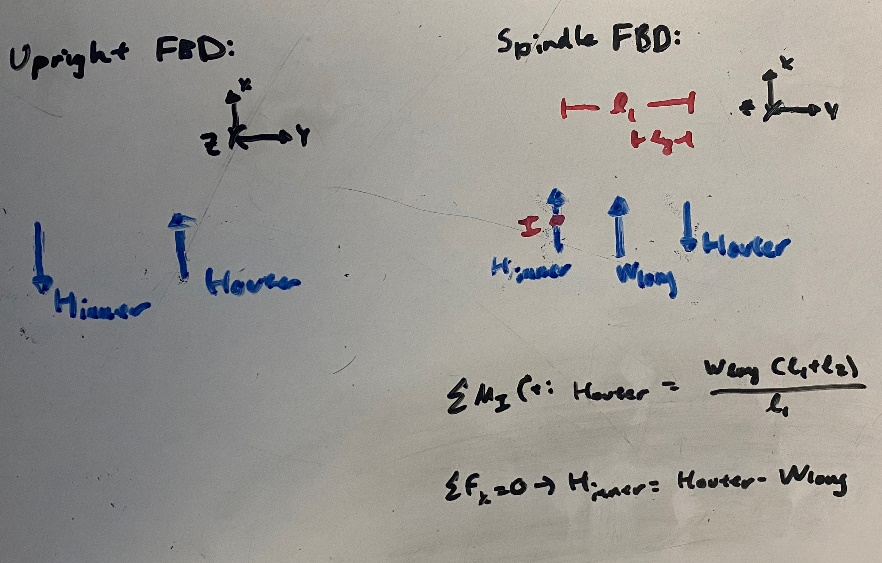 Upright FBD:
X
Z Y
Hinner
Houter
Spindle FBD:
l₁
l₂
X
Z Y
I
Hinner
Wlong
Houter
ΣM_I ↶+: Houter = Wlong (l₁+l₂) / l₁
ΣFₓ=0 → Hinner = Houter - Wlong